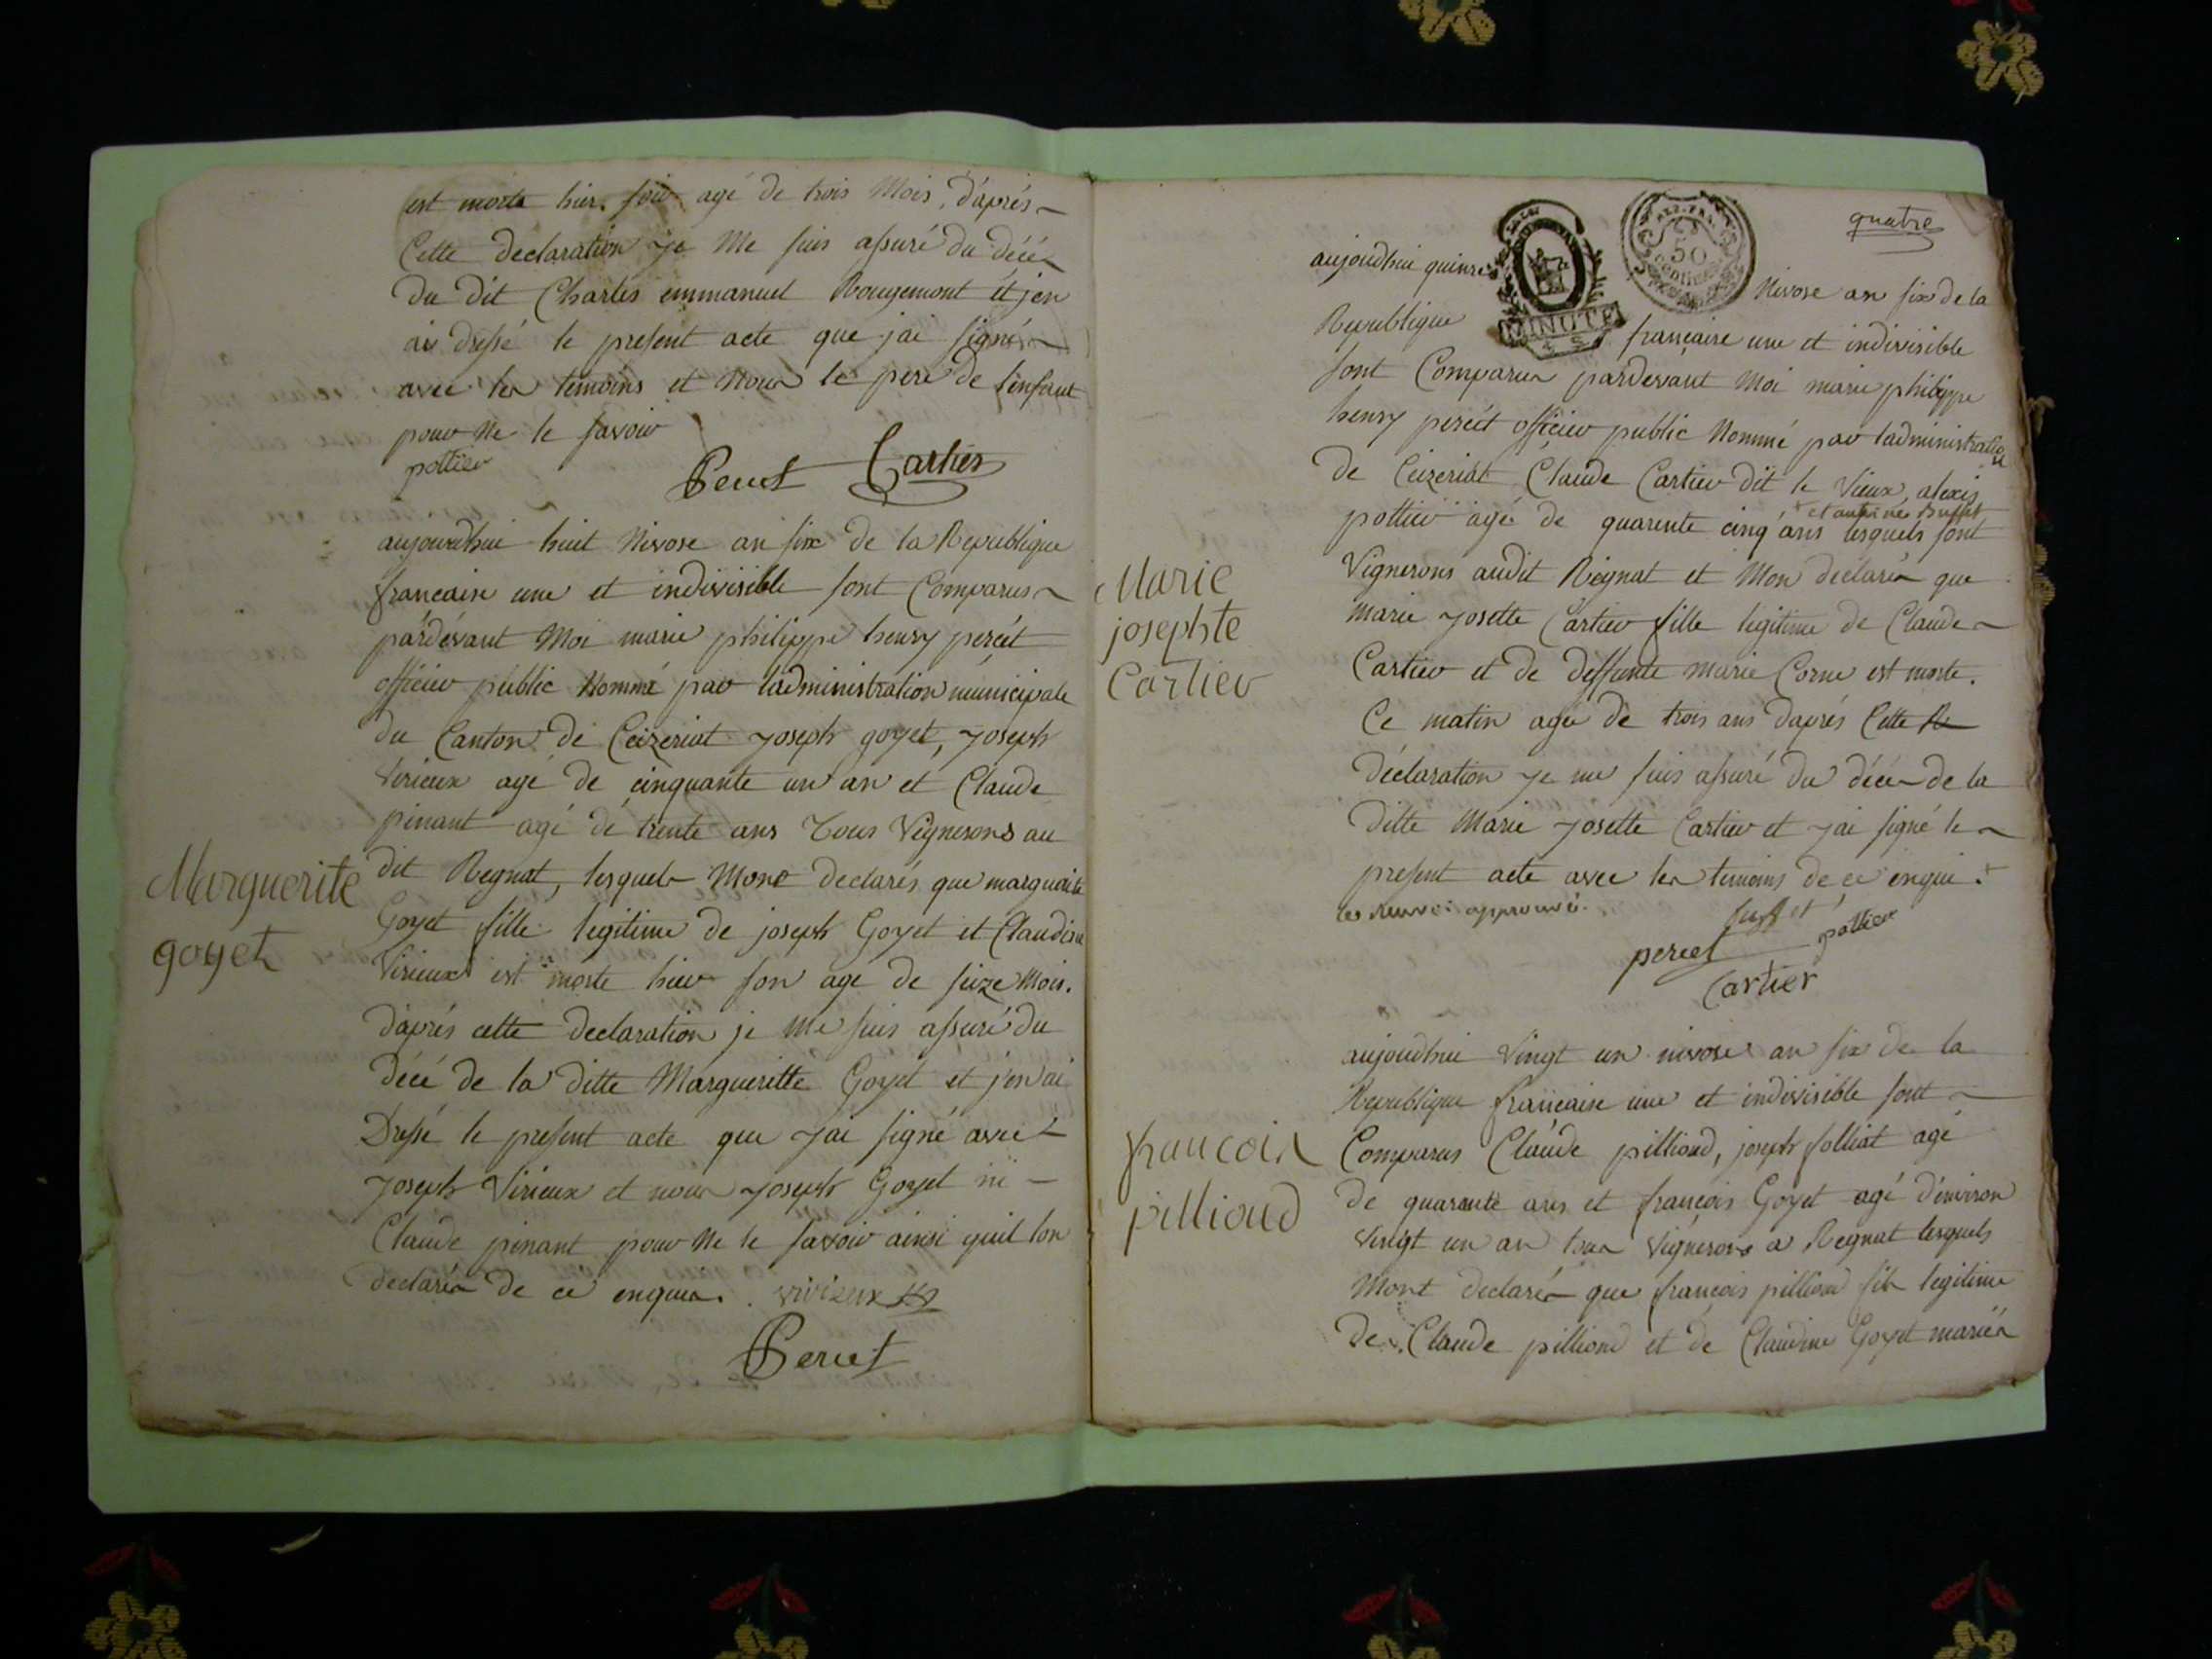 est morte hier soir agé de trois Mois, d'aprés
Cette declaration je Me suis assuré du décé
du dit Charles emmanuel Rougemont et jen
ai dressé le present acte que jai signé
avec les temoins et Non le pere de l'enfant
pour Ne le savoir
pottier
Percet Cartier
aujourdhui huit Nivose an six de la Republique
francaise une et indivisible sont Comparus
pardevant Moi marie philippe henry percét
officier public Nommé par ladministration municipale
du Canton de Ceizeriat joseph goyet, joseph
Virieux agé de cinquante un an et Claude
pinant agé de trente ans Tous Vignerons au
dit Regnat, lesquels Mont declarés que marguerite
Marguerite
goyet
Goyet fille legitime de joseph Goyet et Claudine
Virieux est morte hier son age de seize Mois.
d'aprés cette declaration je me suis assuré du
décé de la ditte Margueritte Goyet et j'en ai
Dressé le present acte que jai signé avec
joseph Virieux et non joseph Goyet ni
Claude pinant pour Ne le savoir ainsi quil lon
declarés de ce enquis. virieux
Percet
quatre
MINUTE
REP. FRA.
50
CENTIMES
aujoudhui quinze Nivose an six de la
Republique francaise une et indivisible
sont Comparus pardevant Moi marie philippe
henry percét officier public Nommé par ladministration
de Ceizeriat Claude Cartier dit le Vieux, alexis
pottier agé de quarente cinq ans lesquels sont
Vignerons audit Reignat et Mon declarés que
Marie
josephte
Cartier
marie josette Cartier fille legitime de Claude
Cartier et de deffunte marie Corne est morte.
Ce matin agée de trois ans daprés Cette
déclaration je me suis assuré du décé de la
ditte Marie josette Cartier et jai signé le
present acte avec les temoins de ce enqui.
le renvoi approuvé.
buffet
percet pottier
Cartier
aujoudhui Vingt un nivose an six de la
Republique francaise une et indivisible sont
francois
pillioud
Comparus Claude pillioud, joseph folliat agé
de quarante ans et francois Goyet agé d'environ
Vingt un an tous Vignerons a Regnat lesquels
Mont declarés que francois pilliou fils legitime
de Claude pilliond et de Claudine Goyet mariés